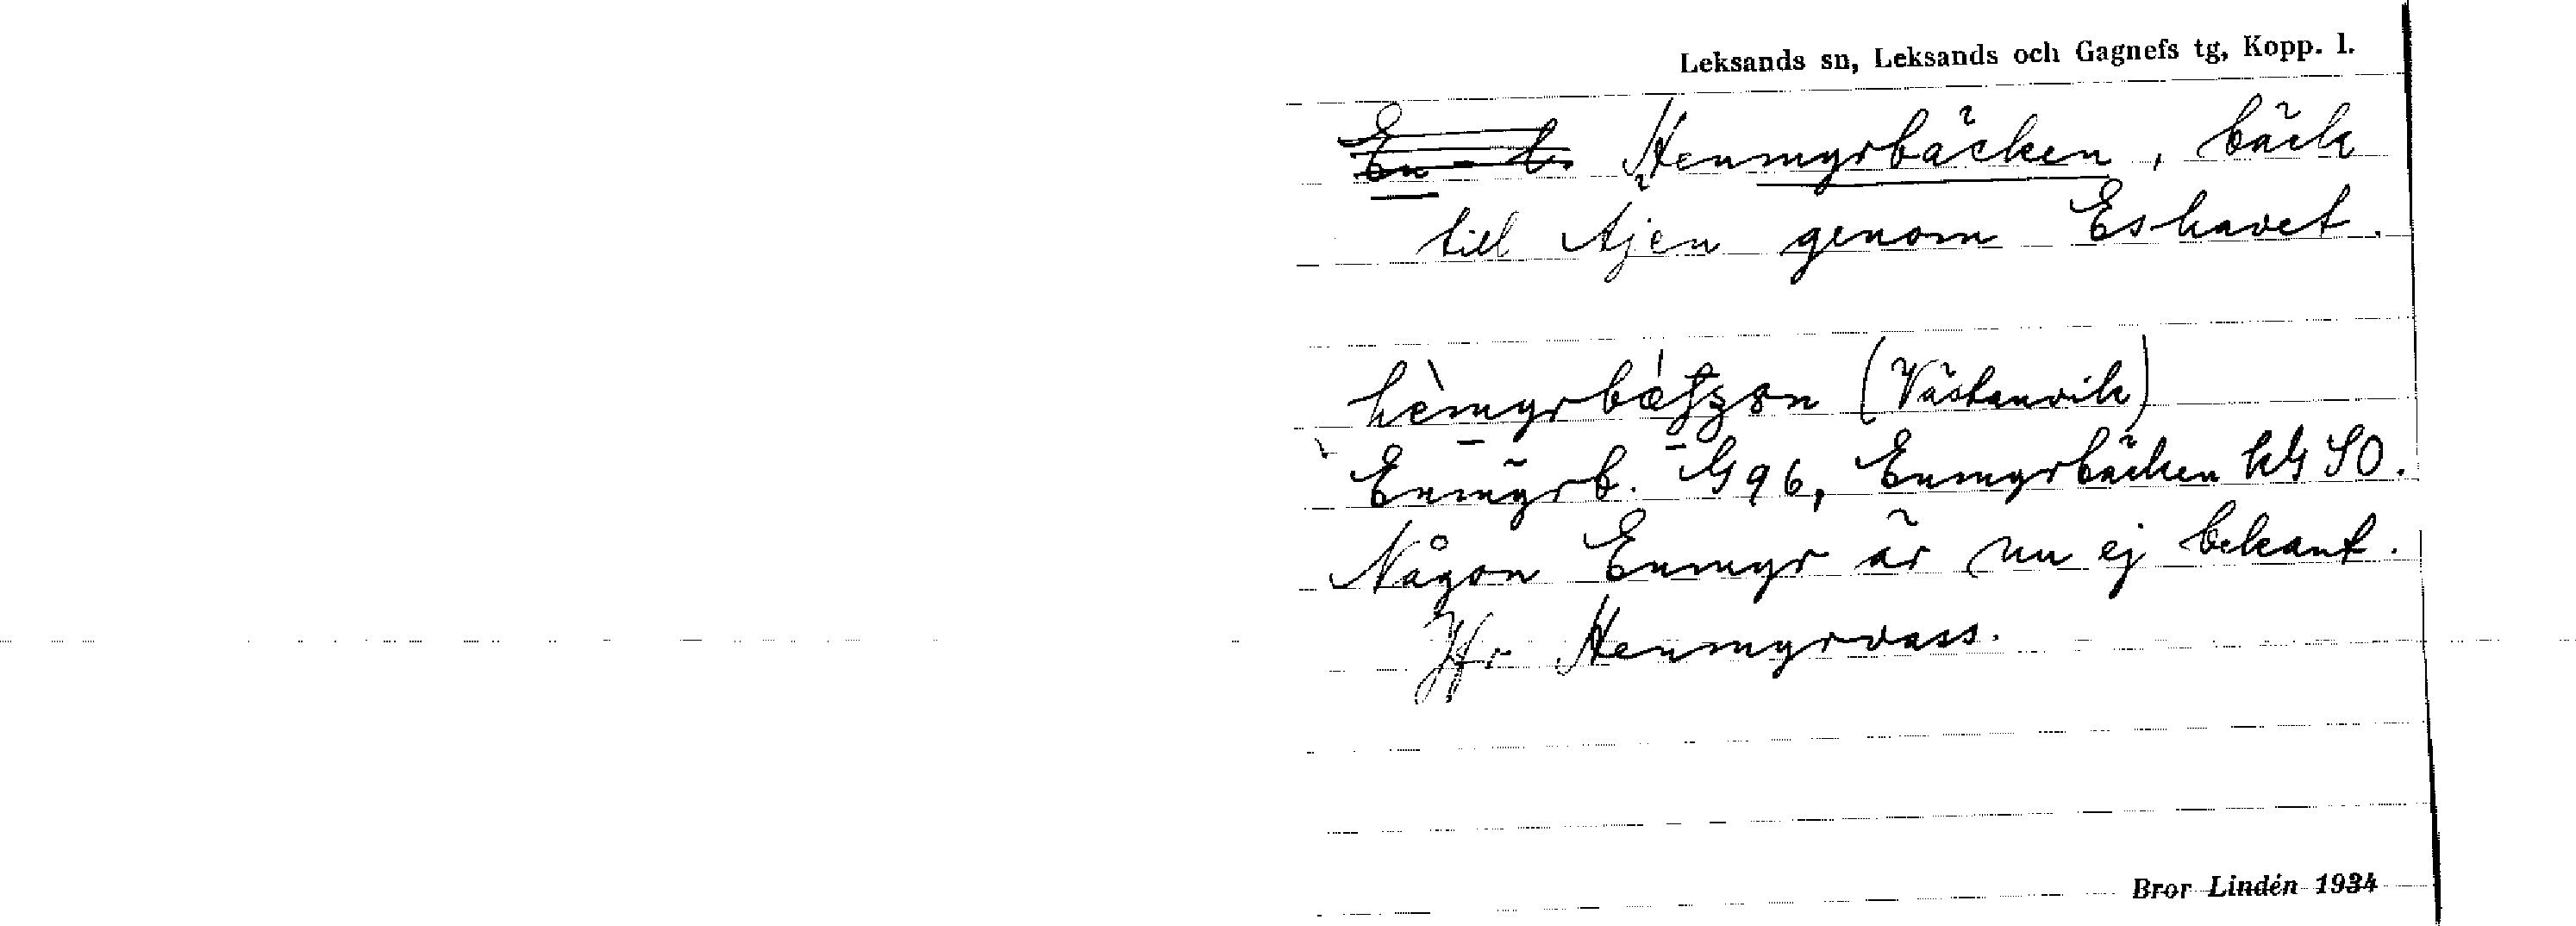 Leksands sn, Leksands och Gagnefs tg, Kopp. l.
Henmyrbäcken, bäck
till Ajen genom Eshavet.
(Västanvik)
Enmyrb. G 96, Enmyrbäcken hG SO.
Någon Enmyr är nu ej bekant.
Jfr Henmyrvass.
Bror Lindén 1934